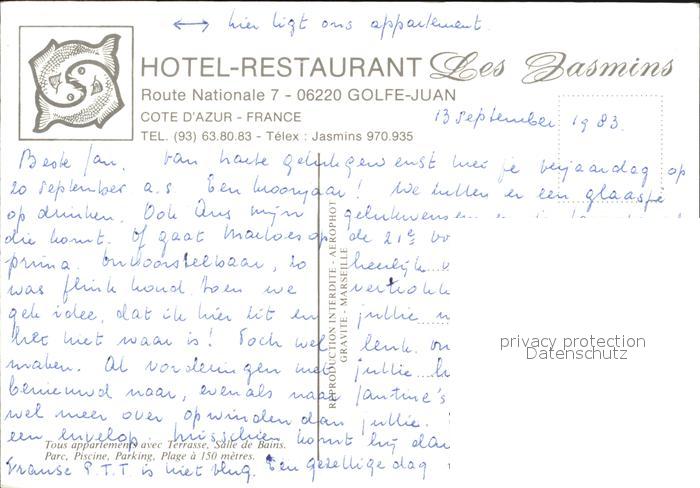 ⟷ hier ligt ons appartement.
HOTEL-RESTAURANT Les Jasmins
Route Nationale 7 - 06220 GOLFE-JUAN
COTE D'AZUR - FRANCE
TEL. (93) 63.80.83 - Télex : Jasmins 970.935
13 september 1983.
Beste Jan, van harte gelukgewenst met je verjaardag op
20 september a.s. Een kroonjaar! We zullen er een glaasje
op drinken. Ook Ans mijn gelukwensen
die komt. Of gaat Marloes op de 21e
prima. Onvoorstelbaar, zo heerlijk
was flink koud toen we vertrokken
gek idee, dat ik hier zit en jullie
het niet waar is! Toch wel leuk.
maken. Al vorderingen met jullie
benieuwd naar, evenals naar Jantine's
wel meer over opwinden dan jullie.
een envelop. Misschien komt hij dan
Franse P.T.T. is niet vlug. Een gezellige dag
REPRODUCTION INTERDITE - AEROPHOT
GRAVITE - MARSEILLE
Tous appartements avec Terrasse, Salle de Bains.
Parc, Piscine, Parking, Plage à 150 mètres.
privacy protection
Datenschutz